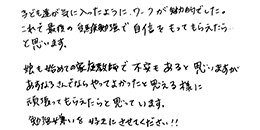 子ども達が気に入ったように、ワークが魅力的でした。
これで最後の 勉強で自信をもってもらえたら…
と思います。
娘も始めての家庭教師で不安もあると思いますが
さんならやってよかったと思える様に
頑張ってもらえたらと思っています。
勉強嫌いを好きにさせてください!!